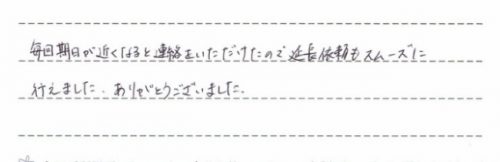 毎回期日が近くなると連絡をいただけたので延長依頼もスムーズに
行えました. ありがとうございました.